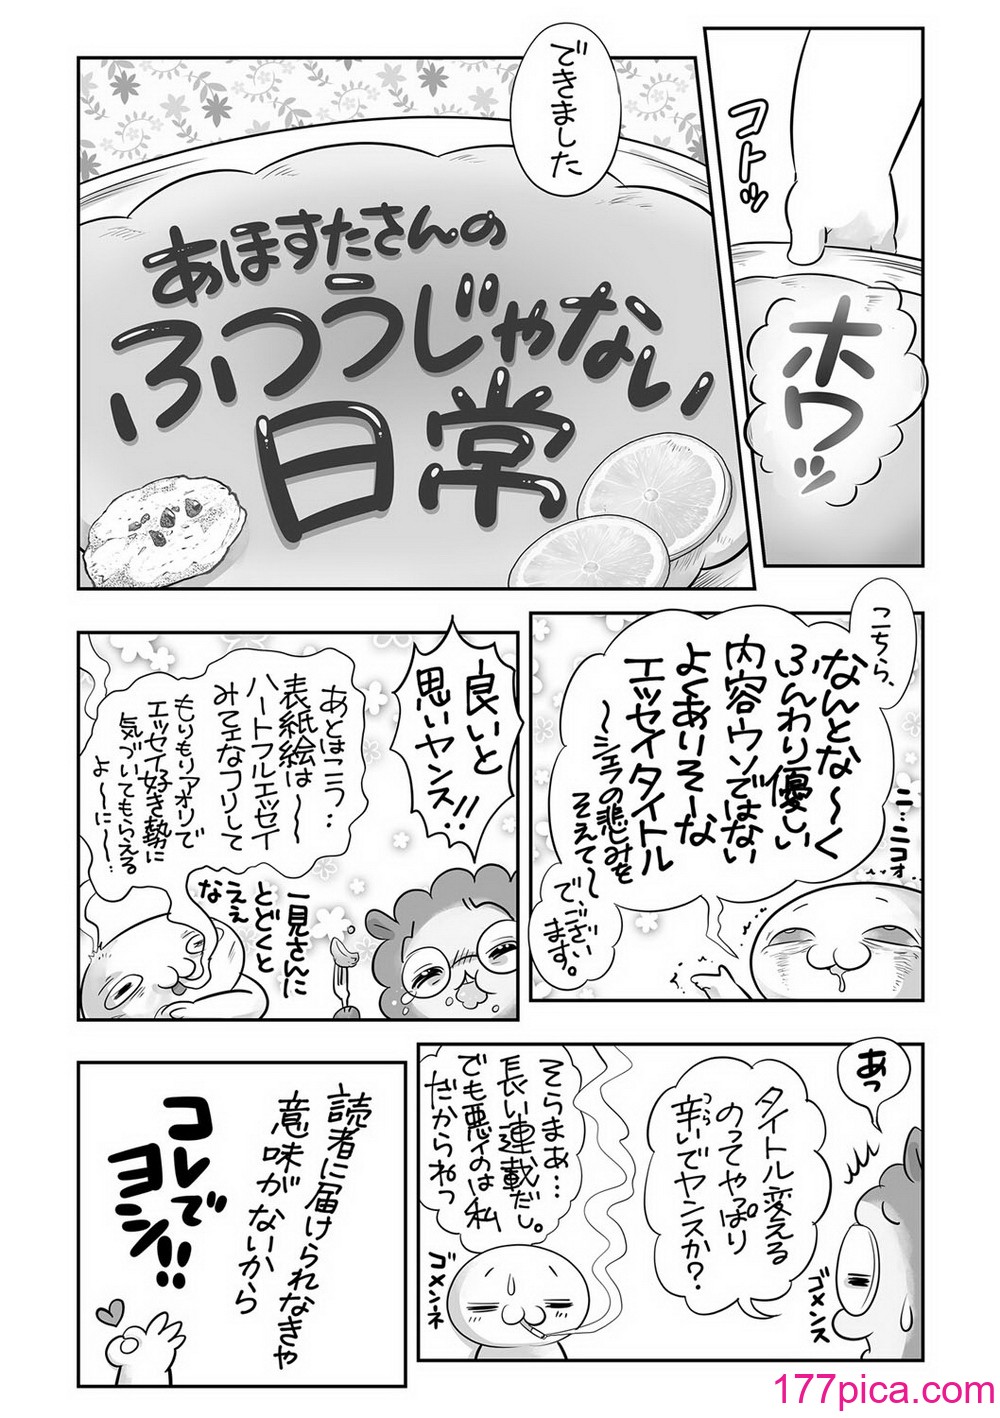 コトッ
ホワッ
できました
あほすたさんの
ふつうじゃない
日常
こちら、
なんとな〜く
ふんわり優しい
内容ウソではない
よくありそーな
エッセイタイトル
〜シェフの悲しみを
そえて〜
で、ござい
ます。
ニ…ニコォ
良いと
思いヤンス!!
あとはこう…
表紙絵は〜
ハートフルエッセイ
みてェなフリして
もりもりアオリで
エッセイ好き勢に
気づいてもらえる
よーに…
一見さんに
とどくと
ええ
な
あっ
タイトル変える
のってやっぱり
辛いでヤンスか?
つら
ゴメンス
そらまあ…
長い連載だし。
でも悪イのは私
だからねっ
ゴメンネ
読者に届けられなきゃ
意味がないから
コレで
ヨシ!!
177pica.com